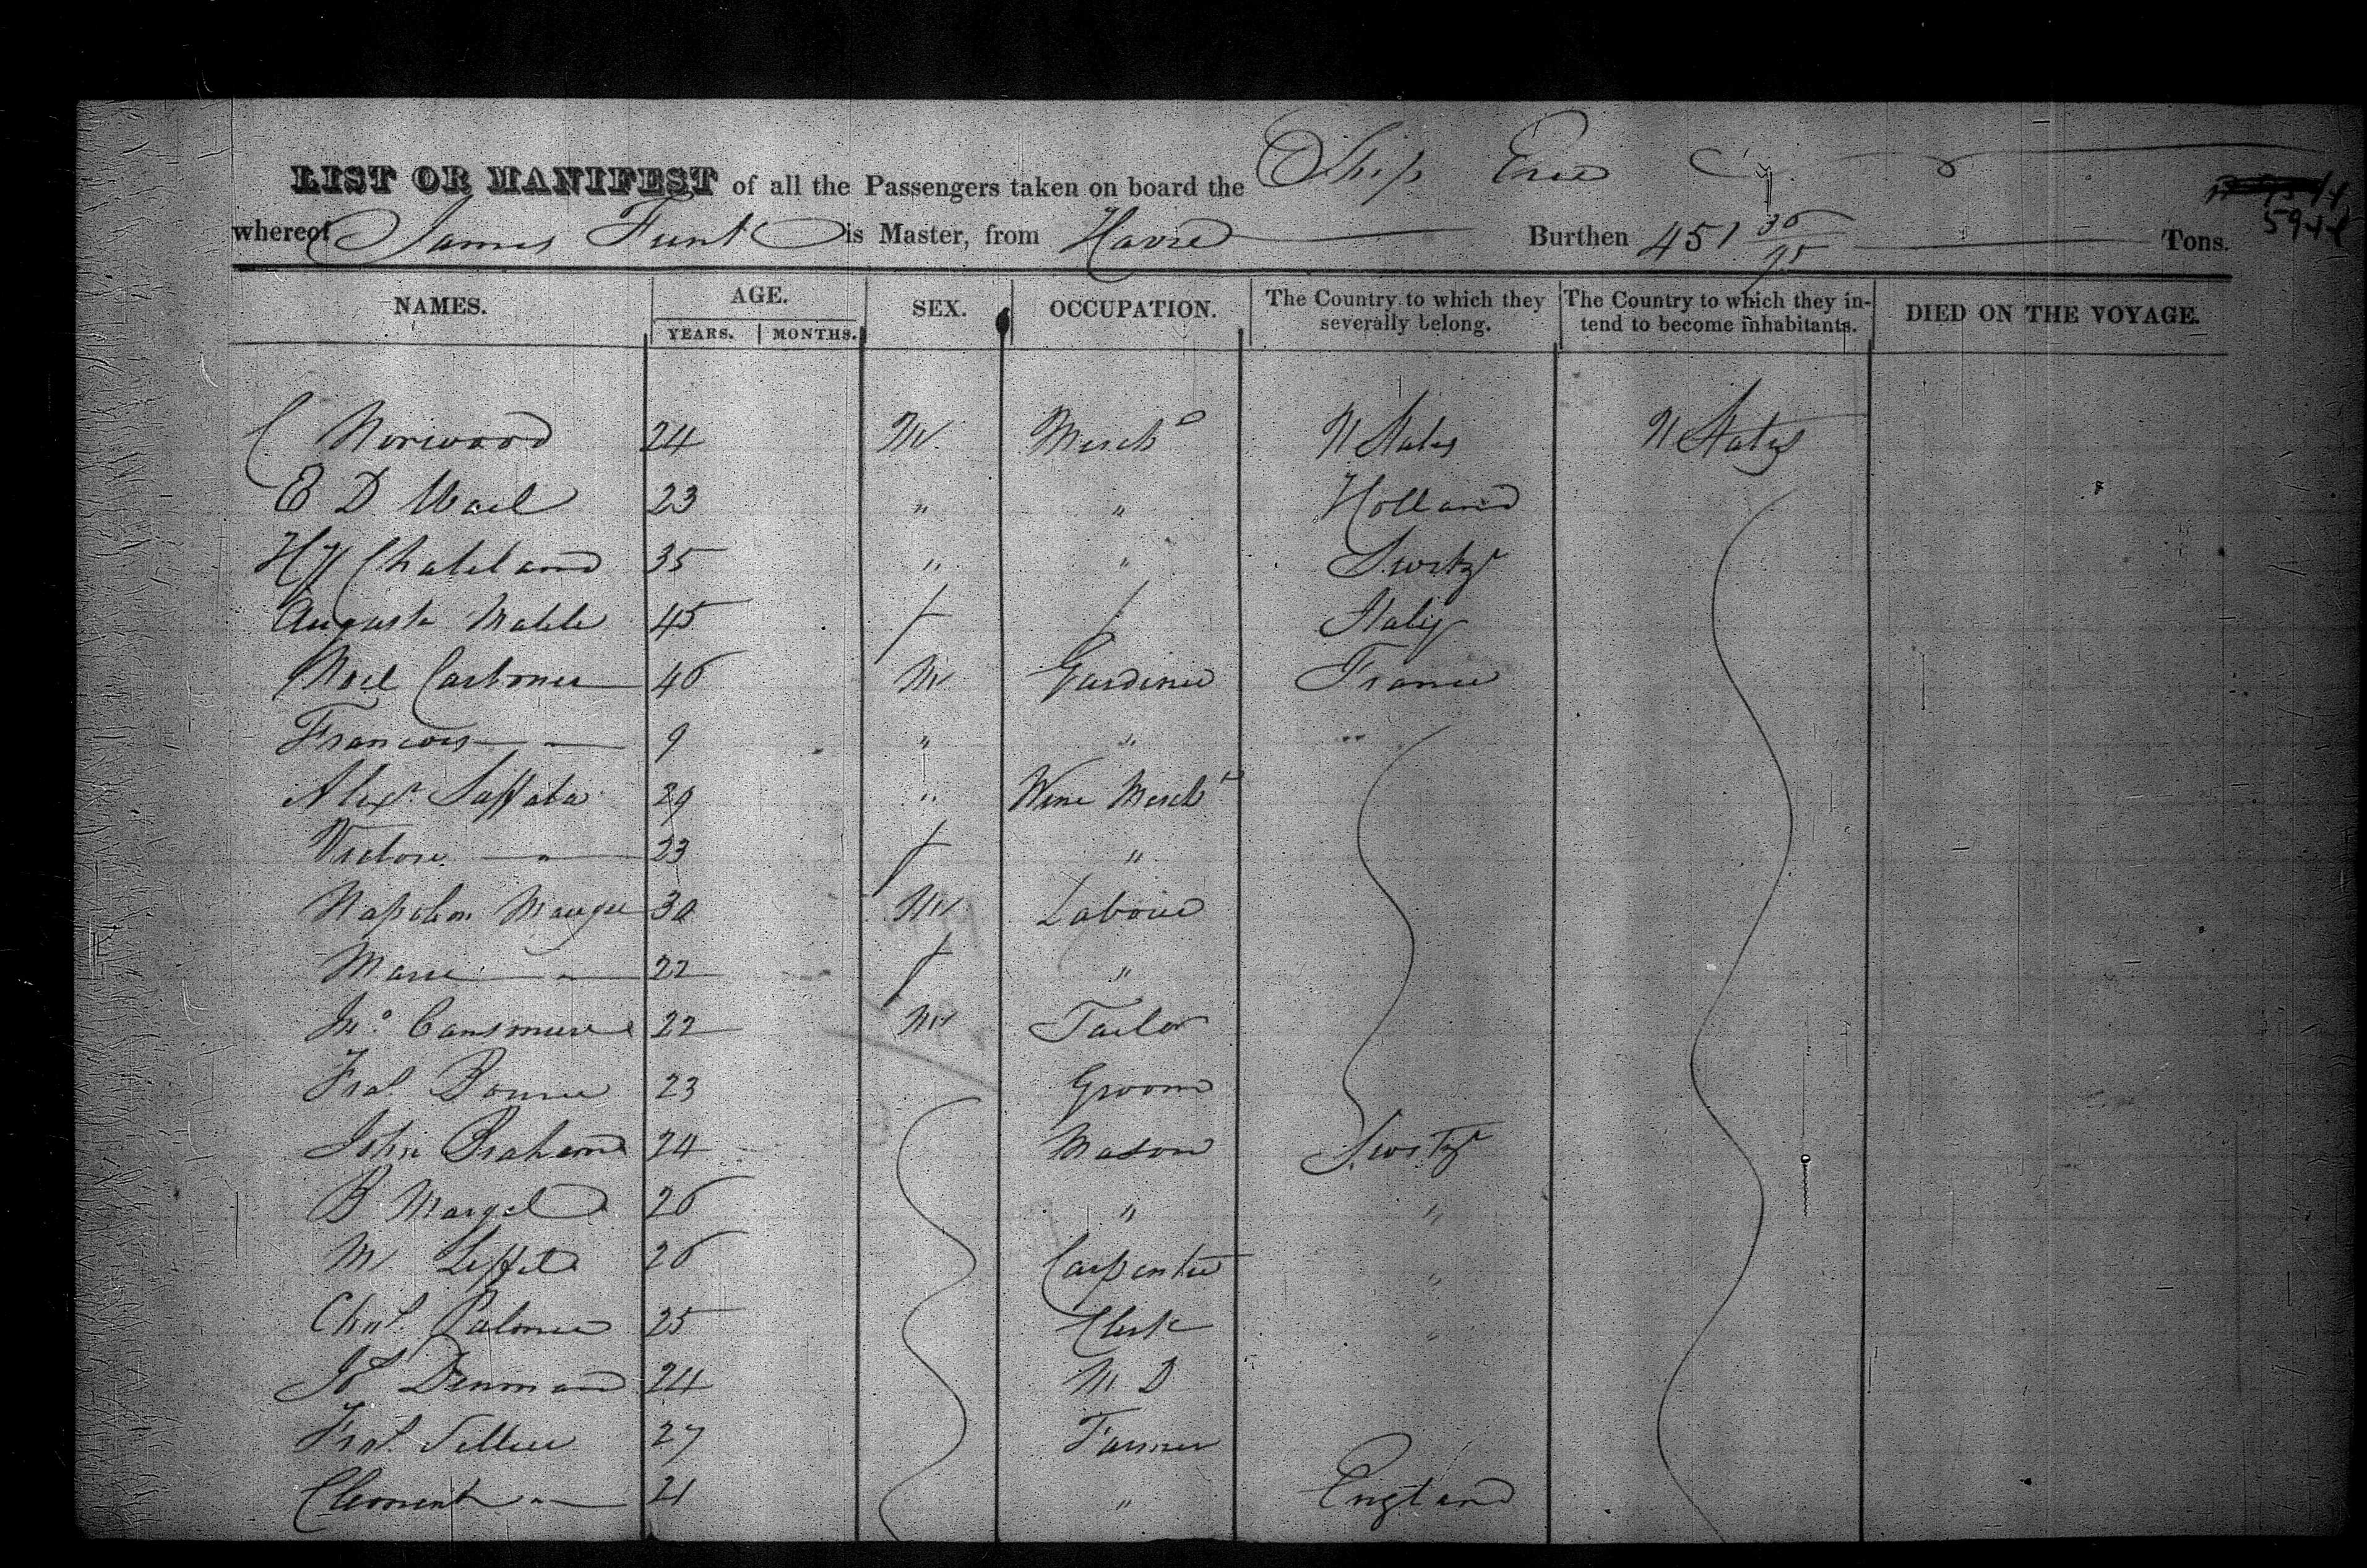 LIST OR MANIFEST of all the Passengers taken on board the Ship Erie
5944
whereof James Funk is Master, from Havre Burthen 451 36/95 Tons.
NAMES. AGE. SEX. OCCUPATION. The Country to which they severally belong. The Country to which they intend to become inhabitants. DIED ON THE VOYAGE.
YEARS. MONTHS.
C Norwood 24 M Mercht U States U States
E D 23 " " Holland
Hy Chateland 35 " " Switzd
Augusta 45 f / Italy
Noel 46 M Gardener France
Francois — " — 9 " " "
Alexr. Laffata 29 " Wine Mercht
Victore — " — 23 f "
Napoleon 30 M Laborer
Marie — " — 22 f "
Jno. 22 M Tailor
Fras. 23 Groom
John Braham 24 Mason Switzd
B Margel 26 " "
M Leffel 26 Carpenter "
Chas. Palmer 25 Clerk "
Js Denmand 24 M D
Fras. Sellier 27 Farmer
Clement — " — 21 " England